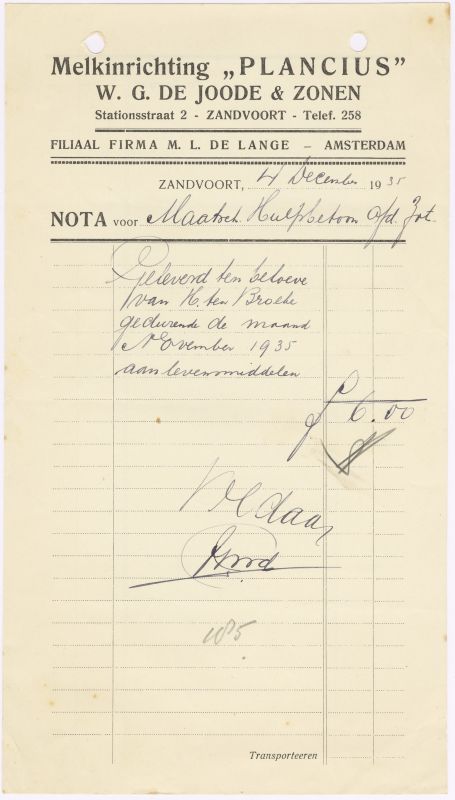 Melkinrichting „PLANCIUS”
W. G. DE JOODE & ZONEN
Stationsstraat 2 - ZANDVOORT - Telef. 258
FILIAAL FIRMA M. L. DE LANGE – AMSTERDAM
ZANDVOORT, 4 December 1935
NOTA voor Maatsch. Hulpbetoon afd. Zvt.
Geleverd ten behoeve
van H ten Broeke
gedurende de maand
November 1935
aan levensmiddelen
ƒ 6.00
Voldaan
185
Transporteeren